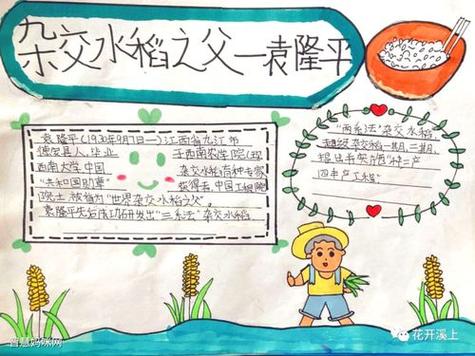 杂交水稻之父—袁隆平
袁隆平(1930年9月7日—)江西省九江市
德安县人,毕业于西南农学院(现
西南大学,中国杂交水稻育种专家
"共和国勋章"获得者,中国工程院
院士,被誉为"世界杂交水稻之父"。
袁隆平先后成功研发出"三系法"杂交水稻
"两系法"杂交水稻,
超级杂交稻一期、二期,
提出并实施"种三产
四丰产工程"
智慧妈咪网
花开溪上